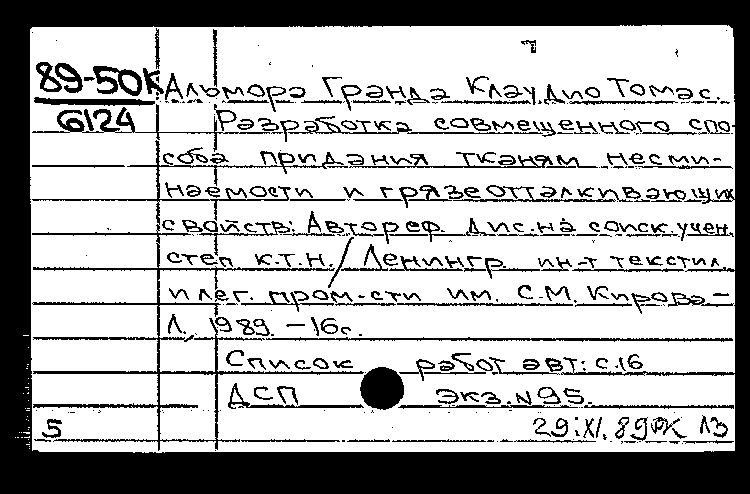 89-50К Альмора Гранда Клаудио Томас.
6124 Разработка совмещенного спо-
соба придания тканям несми-
наемости и грязеотталкивающих
свойств: Автореф. дис. на соиск. учен.
степ к.т.н. / Ленингр. ин-т текстил.
и лег. пром-сти им. С.М. Кирова –
Л, 1989. – 16с.
Список работ авт: с.16
ДСП экз. N 95.
5 29.XI.89